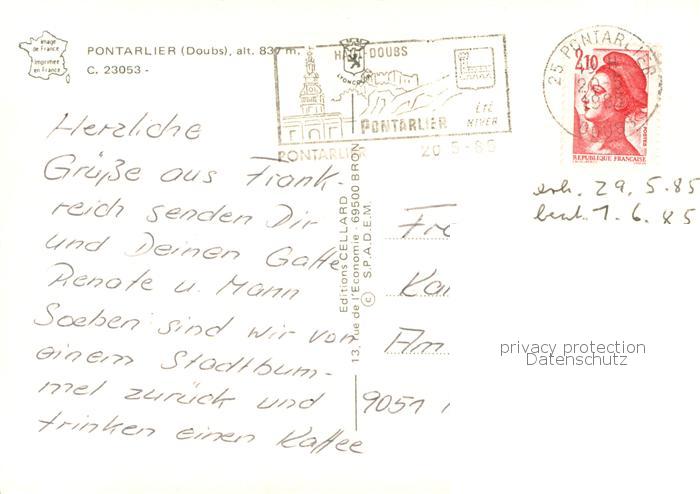 image
de France
Imprimée
en France
PONTARLIER (Doubs), alt. 837 m.
C. 23053 -
HAUT-DOUBS
PONTARLIER
ÉTÉ
HIVER
PONTARLIER 20-5-85
25 PONTARLIER
DOUBS
2,10
POSTES
REPUBLIQUE FRANÇAISE
Herzliche
Grüße aus Frank-
reich senden Dir
und Deinen Gatte
Renate u. Mann
Soeben sind wir von
einem Stadtbum-
mel zurück und
trinken einen Kaffee
Editions CELLARD
13, rue de l'Economie - 69500 BRON
© S.P.A.D.E.M.
erh. 29.5.85
beant. 1.6.85
Fre
Kai
Am
9051
privacy protection
Datenschutz